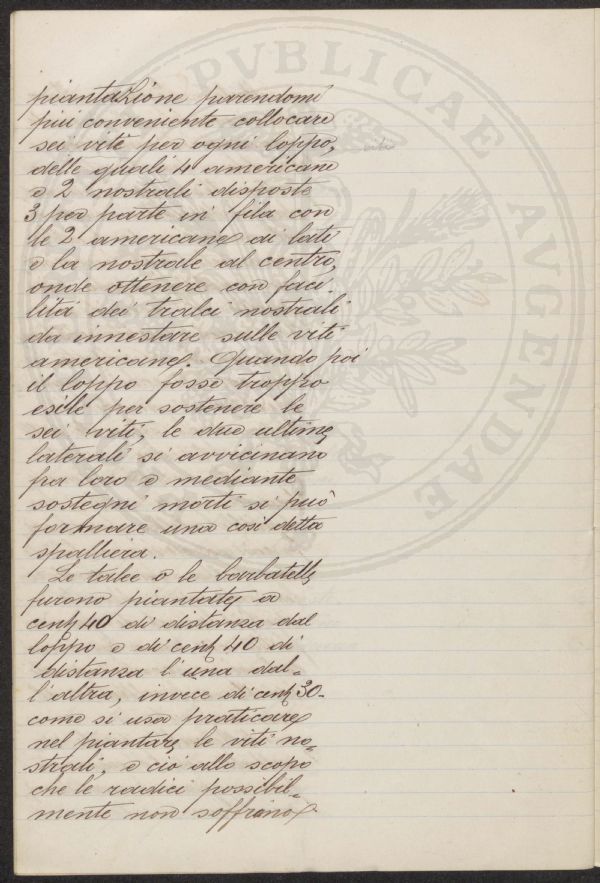 piantazione parendomi
più conveniente collocare
sei vite per ogni loppo,
delle quali 4 americane
e 2 nostrali disposte
3 per parte in fila con
le 2 americane ai lati
e la nostrale al centro,
onde ottenere con faci-
lità dei tralci nostrali
da innestare sulle viti
americane. Quando poi
il loppo fosse troppo
esile per sostenere le
sei viti, le due ultime
laterali si avvicinano
fra loro e mediante
sostegni morti si può
formare una così detta
spalliera.
Le talee o le barbatelle
furono piantate a
cent 40 di distanza dal
loppo e di cent 40 di
distanza l'una dal-
l'altra, invece di cent 30-
come si usa praticare
nel piantare le viti no-
strali, e ciò allo scopo
che le radici possibil-
mente non soffrino
PVBLICAE AVGENDAE